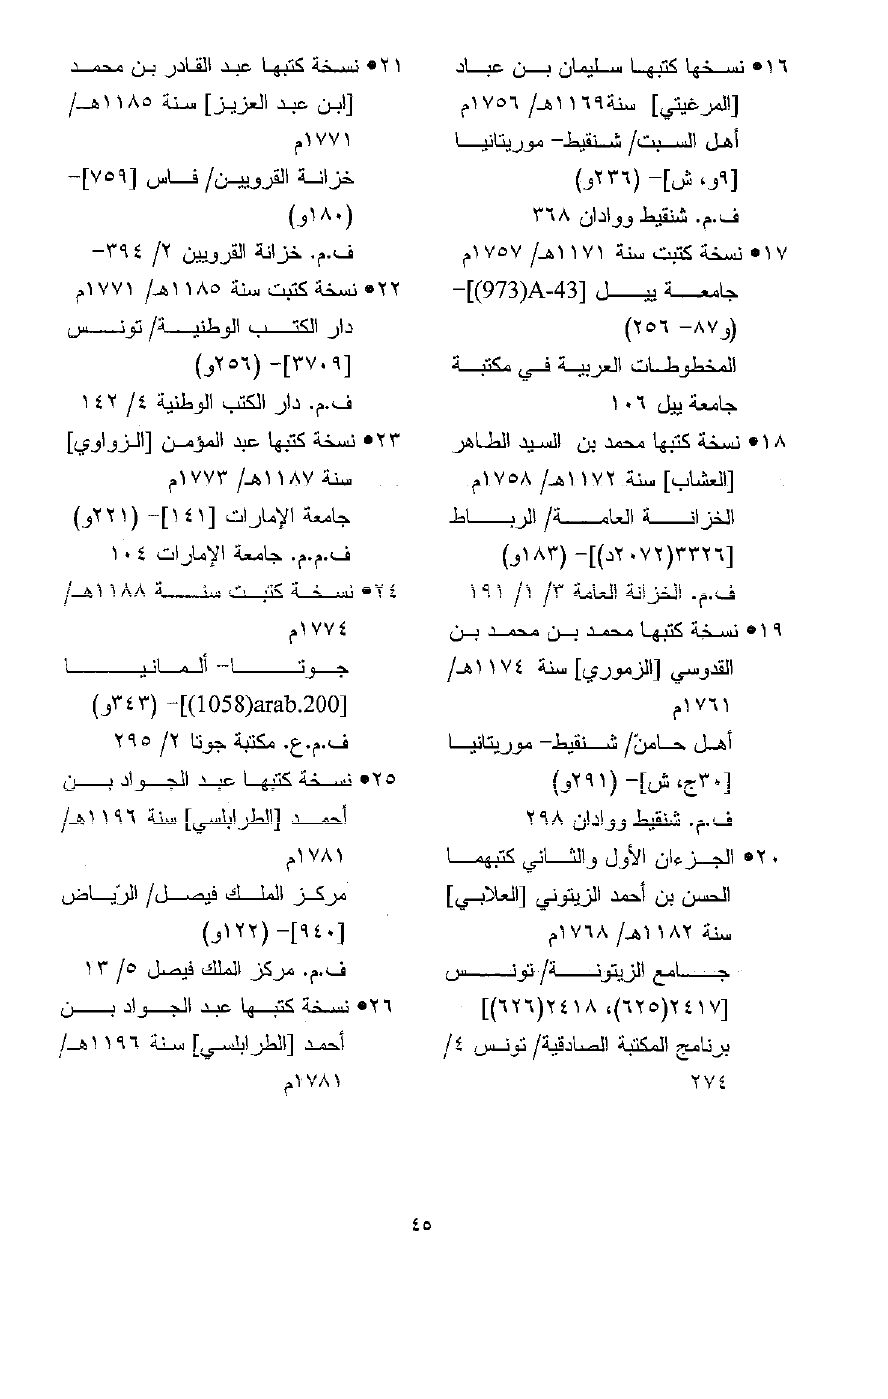 ١٦• نسخها كتبها سليمان بن عباد
[المرغيتي] سنة١١٦٩هـ/ ١٧٥٦م
أهل السبت/ شنقيط- موريتانيا
[٩و، ش]- (٢٣٦و)
ف.م. شنقيط ووادان ٣٦٨
١٧• نسخة كتبت سنة ١١٧١هـ/ ١٧٥٧م
جامعة ييل [973)A-43)]-
(و٨٧- ٢٥٦)
المخطوطات العربية في مكتبة
جامعة ييل ١٠٦
١٨• نسخة كتبها محمد بن السيد الطاهر
[العشاب] سنة ١١٧٢هـ/ ١٧٥٨م
الخزانة العامة/ الرباط
[٣٣٢٦(٢٠٧٢د)]- (١٨٣و)
ف.م. الخزانة العامة ٣/ ١/ ١٩١
١٩• نسخة كتبها محمد بن محمد بن
القدوسي [الزموري] سنة ١١٧٤هـ/
١٧٦١م
أهل حامنّ/ شنقيط- موريتانيا
[٣٠ج، ش]- (٢٩١و)
ف.م. شنقيط ووادان ٢٩٨
٢٠• الجزءان الأول والثاني كتبهما
الحسن بن أحمد الزيتوني [العلابي]
سنة ١١٨٢هـ/ ١٧٦٨م
جامع الزيتونة/ تونس
[٢٤١٧(٦٢٥)، ٢٤١٨(٦٢٦)]
برنامج المكتبة الصادقية/ تونس ٤/
٢٧٤
٢١• نسخة كتبها عبد القادر بن محمد
[ابن عبد العزيز] سنة ١١٨٥هـ/
١٧٧١م
خزانة القرويين/ فاس [٧٥٩]-
(١٨٠و)
ف.م. خزانة القرويين ٢/ ٣٩٤-
٢٢• نسخة كتبت سنة ١١٨٥هـ/ ١٧٧١م
دار الكتب الوطنية/ تونس
[٣٧٠٩]- (٢٥٦و)
ف.م. دار الكتب الوطنية ٤/ ١٤٢
٢٣• نسخة كتبها عبد المؤمن [الزواوي]
سنة ١١٨٧هـ/ ١٧٧٣م
جامعة الإمارات [١٤١]- (٢٢١و)
ف.م.م. جامعة الإمارات ١٠٤
٢٤• نسخة كتبت سنة ١١٨٨هـ/
١٧٧٤م
جوتا- ألمانيا
[1058)arab.200)]- (٣٤٣و)
ف.م.ع. مكتبة جوتا ٢/ ٢٩٥
٢٥• نسخة كتبها عبد الجواد بن
أحمد [الطرابلسي] سنة ١١٩٦هـ/
١٧٨١م
مركز الملك فيصل/ الريّاض
[٩٤٠]- (١٢٢و)
ف.م. مركز الملك فيصل ٥/ ١٣
٢٦• نسخة كتبها عبد الجواد بن
أحمد [الطرابلسي] سنة ١١٩٦هـ/
١٧٨١م
٤٥